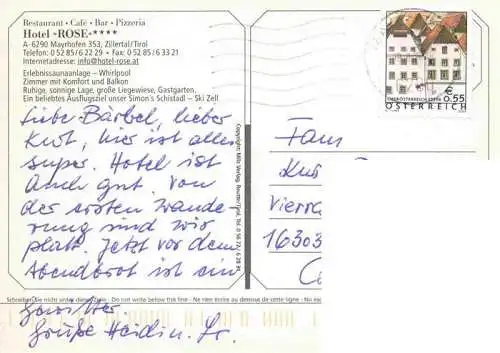 Restaurant • Café • Bar • Pizzeria
Hotel »ROSE«****
A-6290 Mayrhofen 353, Zillertal/Tirol
Telefon: 0 52 85/6 22 29 • Fax: 0 52 85/6 33 21
Internetadresse: info@hotel-rose.at
Erlebnissaunanlage – Whirlpool
Zimmer mit Komfort und Balkon
Ruhige, sonnige Lage, große Liegewiese, Gastgarten,
Ein beliebtes Ausflugsziel unser Simon's Schistadl – Ski Zell
Liebe Bärbel, lieber
Kurt, hier ist alles
super. Hotel ist
auch gut. Von
der ersten Wande
rung sind wir
platt. Jetzt vor dem
Abendbrot ist ein
Gewitter.
Grüße Heidi u.
Schreiben Sie nicht unter diese Zeile - Do not write below this line - Ne rien écrire au dessous de cette ligne - Non es
Copyright: Milz Verlag, Reutte/Tirol, Tel. 0 56 72 /
€ 0.55
ÖSTERREICH
Fam
Kur
Vierra
16303